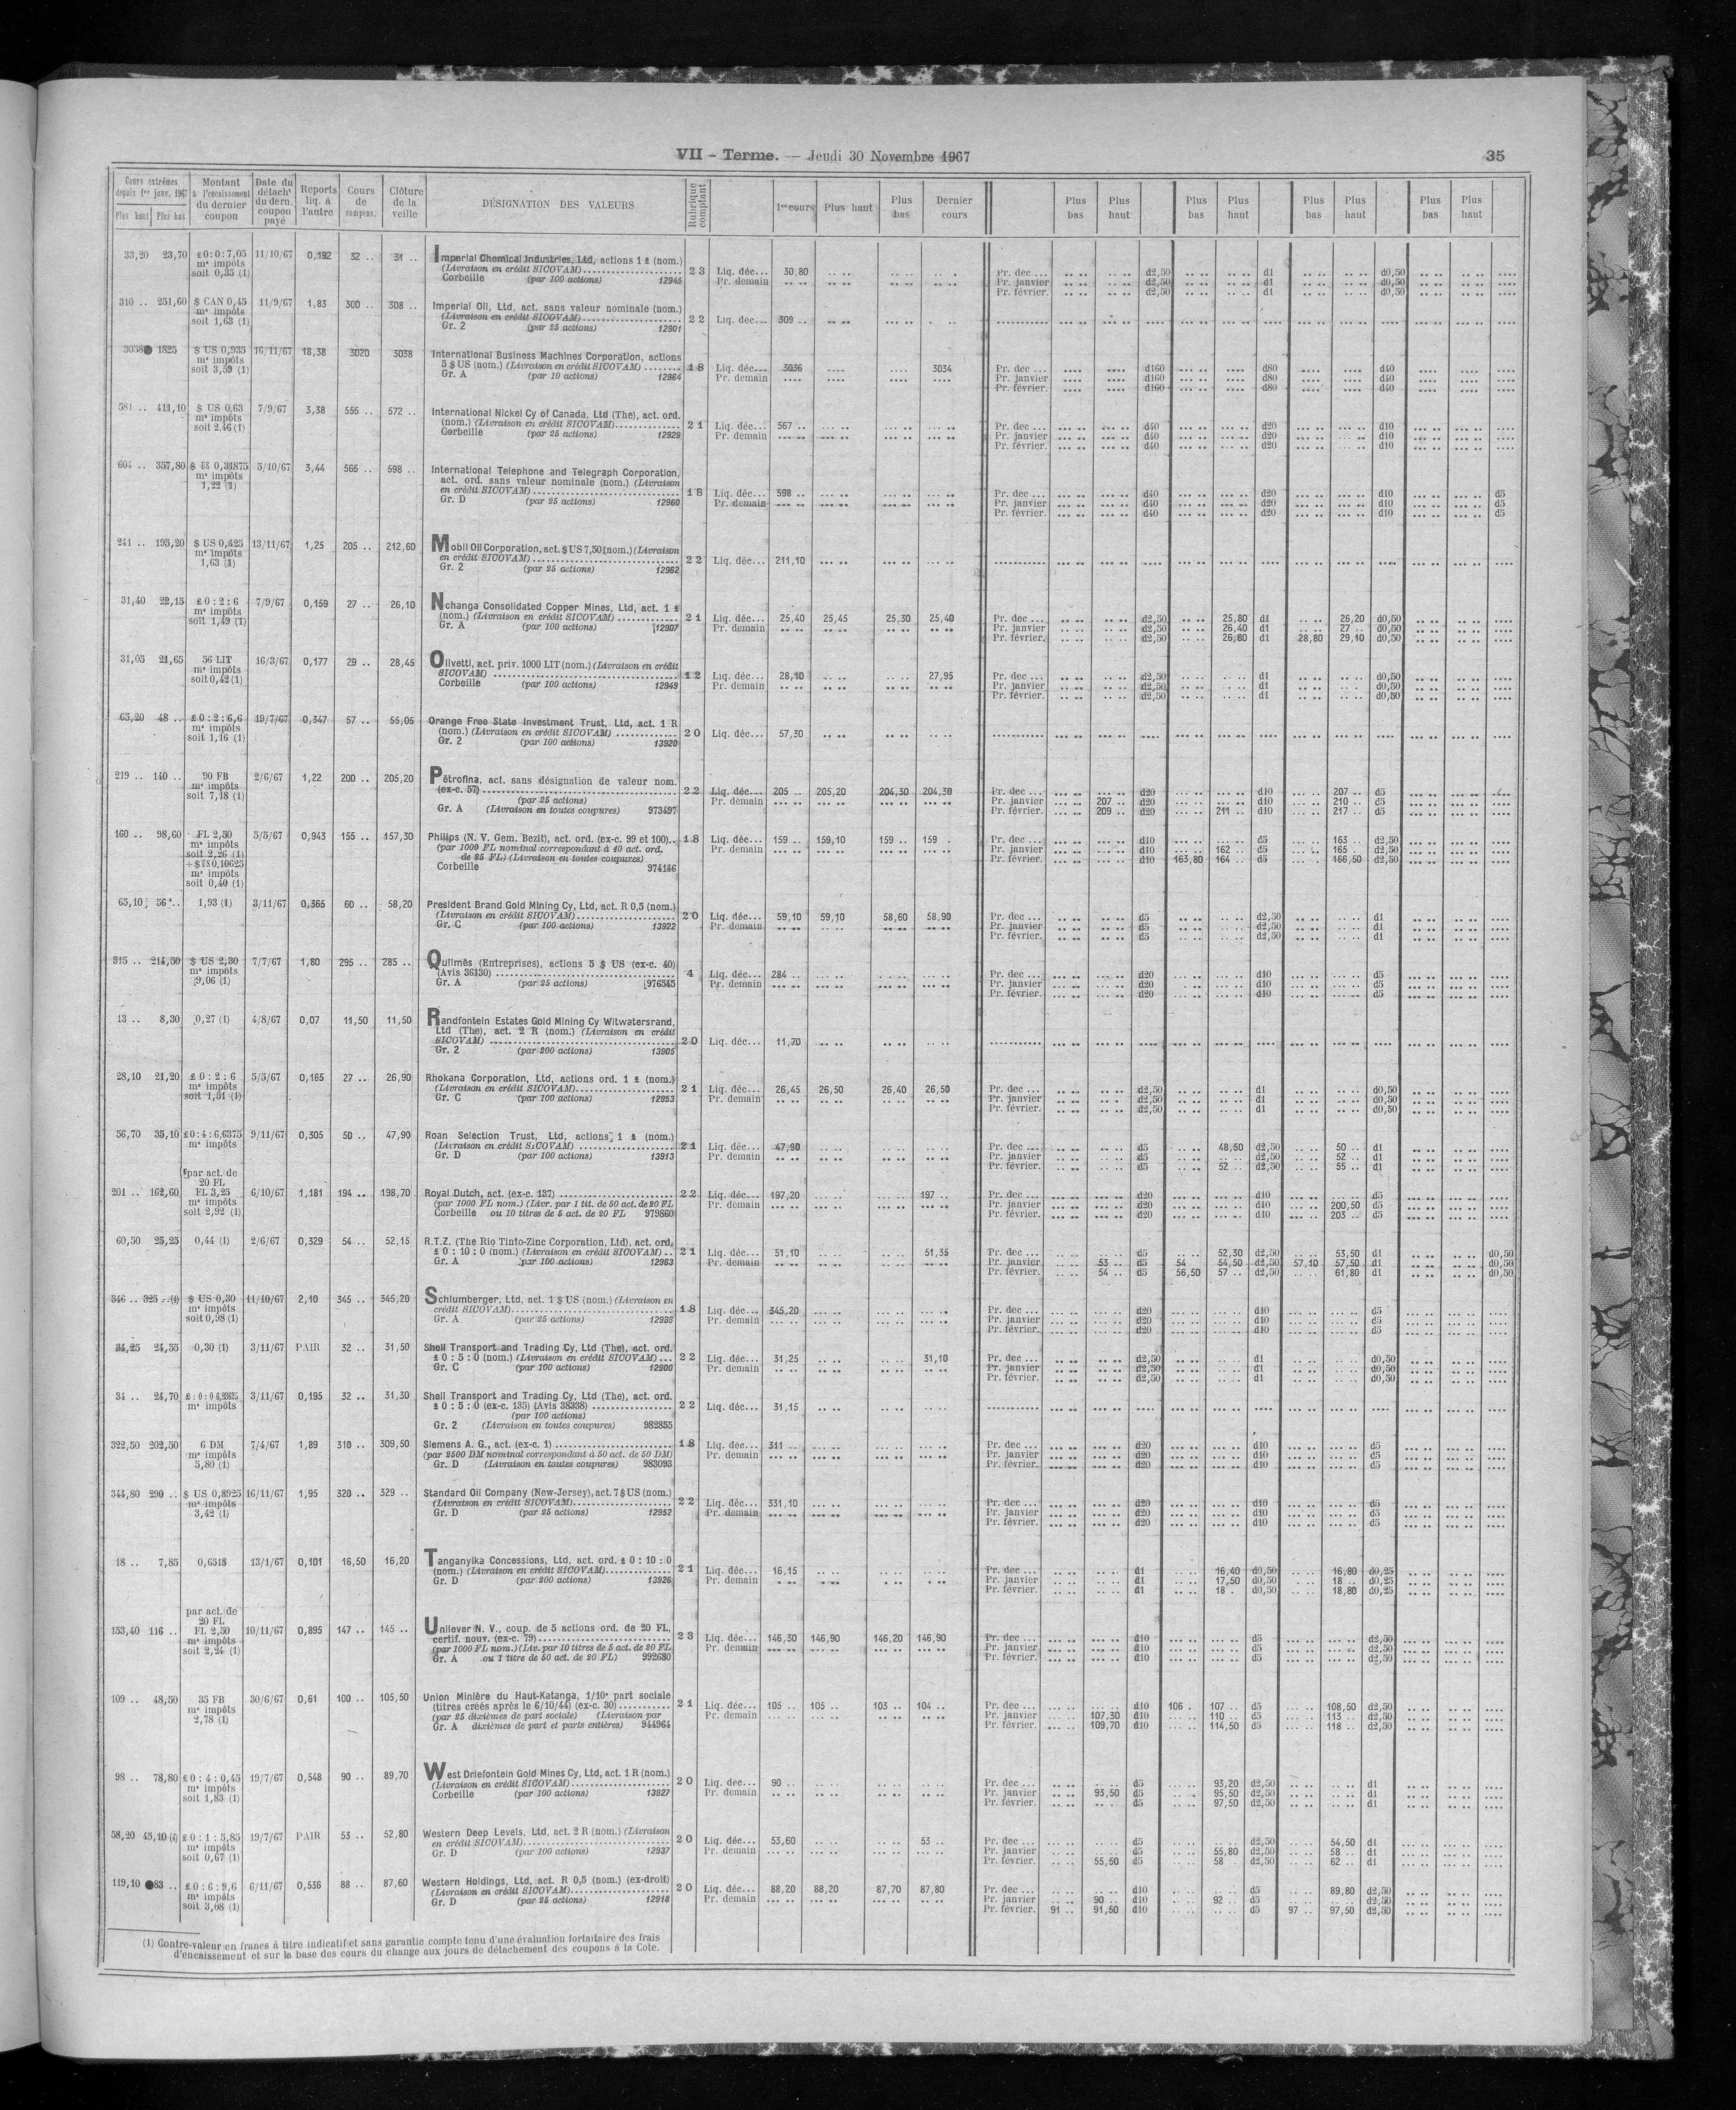 VII - Terme. — Jeudi 30 Novembre 1967 35
Cours extrêmes depuis 1er janv. 1967 Plus haut Plus bas
Montant à l'encaissement du dernier coupon
Date du détacht du dern. coupon payé
Reports liq. à l'autre
Cours de compens.
Clôture de la veille
DÉSIGNATION DES VALEURS
Rubrique comptant
1er cours Plus haut Plus bas Dernier cours
Plus bas Plus haut Plus bas Plus haut Plus bas Plus haut Plus bas Plus haut
33,20 23,70 £ 0:0:7,05 11/10/67 0,192 32 .. 31 .. Imperial Chemical Industries, Ltd, actions 1 £ (nom.)
ms impôts (Livraison en crédit SICOVAM) 23 Liq. déc... 30,80 Pr. dec ... d2,50 d1 d0,50
soit 0,35 (1) Corbeille (par 100 actions) 12945 Pr. demain Pr. janvier d2,50 d1 d0,50
Pr. février. d2,50 d1 d0,50
310 .. 251,60 $ CAN 0,45 11/9/67 1,83 300 .. 308 .. Imperial Oil, Ltd, act. sans valeur nominale (nom.)
ms impôts (Livraison en crédit SICOVAM) 22 Liq. dec... 309 ..
soit 1,63 (1) Gr. 2 (par 25 actions) 12901
3058 1825 $ US 0,935 16/11/67 18,38 3020 3038 International Business Machines Corporation, actions
ms impôts 5 $ US (nom.) (Livraison en crédit SICOVAM) 18 Liq. déc... 3036 3034 Pr. dec ... d160 d80 d40
soit 3,59 (1) Gr. A (par 10 actions) 12964 Pr. demain Pr. janvier d160 d80 d40
Pr. février. d160 d80 d40
581 .. 411,10 $ US 0,63 7/9/67 3,38 555 .. 572 .. International Nickel Cy of Canada, Ltd (The), act. ord.
ms impôts (nom.) (Livraison en crédit SICOVAM) 21 Liq. déc... 567 .. Pr. dec ... d40 d20 d10
soit 2,46 (1) Corbeille (par 25 actions) 12929 Pr. demain Pr. janvier d40 d20 d10
Pr. février. d40 d20 d10
604 .. 357,80 $ US 0,31875 5/10/67 3,44 565 .. 598 .. International Telephone and Telegraph Corporation,
ms impôts act. ord. sans valeur nominale (nom.) (Livraison
1,22 (1) en crédit SICOVAM) 18 Liq. déc... 598 .. Pr. dec ... d40 d20 d10 d5
Gr. D (par 25 actions) 12960 Pr. demain Pr. janvier d40 d20 d10 d5
Pr. février. d40 d20 d10 d5
241 .. 195,20 $ US 0,425 13/11/67 1,25 205 .. 212,60 Mobil Oil Corporation, act. $ US 7,50 (nom.) (Livraison
ms impôts en crédit SICOVAM) 22 Liq. déc... 211,10
1,63 (1) Gr. 2 (par 25 actions) 12962
31,40 22,15 £ 0:2:6 7/9/67 0,159 27 .. 26,10 Nchanga Consolidated Copper Mines, Ltd, act. 1 £
ms impôts (nom.) (Livraison en crédit SICOVAM) 21 Liq. déc... 25,40 25,45 25,30 25,40 Pr. dec ... d2,50 25,80 d1 26,20 d0,50
soit 1,49 (1) Gr. A (par 100 actions) 12907 Pr. demain Pr. janvier d2,50 26,40 d1 27 .. d0,50
Pr. février. d2,50 26,80 d1 28,80 29,10 d0,50
31,05 21,65 56 LIT 16/3/67 0,177 29 .. 28,45 Olivetti, act. priv. 1000 LIT (nom.) (Livraison en crédit
ms impôts SICOVAM) 12 Liq. déc... 28,10 27,95 Pr. dec ... d2,50 d1 d0,50
soit 0,42 (1) Corbeille (par 100 actions) 12949 Pr. demain Pr. janvier d2,50 d1 d0,50
Pr. février. d2,50 d1 d0,50
65,20 48 .. £ 0:2:6,6 19/7/67 0,347 57 .. 55,05 Orange Free State Investment Trust, Ltd, act. 1 R
ms impôts (nom.) (Livraison en crédit SICOVAM) 20 Liq. déc... 57,30
soit 1,16 (1) Gr. 2 (par 100 actions) 13920
219 .. 140 .. 90 FB 2/6/67 1,22 200 .. 205,20 Pétrofina, act. sans désignation de valeur nom.
ms impôts (ex-c. 57) 22 Liq. déc... 205 .. 205,20 204,30 204,30 Pr. dec ... d20 d10 207 .. d5
soit 7,18 (1) (par 25 actions) Pr. demain Pr. janvier 207 .. d20 d10 210 .. d5
Gr. A (Livraison en toutes coupures) 973497 Pr. février. 209 .. d20 211 .. d10 217 .. d5
160 .. 98,60 FL 2,50 5/5/67 0,943 155 .. 157,30 Philips (N. V. Gem. Bezit), act. ord. (ex-c. 99 et 100) 18 Liq. déc... 159 .. 159,10 159 .. 159 . Pr. dec ... d10 d5 163 .. d2,50
ms impôts (par 1000 FL nominal correspondant à 40 act. ord. Pr. demain Pr. janvier d10 162 .. d5 165 .. d2,50
soit 2,26 (1) de 25 FL) (Livraison en toutes coupures) Pr. février. d10 163,80 164 .. d5 166,50 d2,50
+ $ US 0,10625 Corbeille 974146
ms impôts
soit 0,40 (1)
65,10 56 .. 1,93 (1) 3/11/67 0,365 60 .. 58,20 President Brand Gold Mining Cy, Ltd, act. R 0,5 (nom.)
(Livraison en crédit SICOVAM) 20 Liq. déc... 59,10 59,10 58,60 58,90 Pr. dec ... d5 d2,50 d1
Gr. C (par 100 actions) 13922 Pr. demain Pr. janvier d5 d2,50 d1
Pr. février. d5 d2,50 d1
315 .. 214,50 $ US 2,30 7/7/67 1,80 295 .. 285 .. Quilmès (Entreprises), actions 5 $ US (ex-c. 40)
ms impôts (Avis 36130) 4 Liq. déc... 284 .. Pr. dec ... d20 d10 d5
9,06 (1) Gr. A (par 25 actions) 976545 Pr. demain Pr. janvier d20 d10 d5
Pr. février. d20 d10 d5
13 .. 8,30 0,27 (1) 4/8/67 0,07 11,50 11,50 Randfontein Estates Gold Mining Cy Witwatersrand,
Ltd (The), act. 2 R (nom.) (Livraison en crédit
SICOVAM) 20 Liq. déc... 11,70
Gr. 2 (par 200 actions) 13905
28,10 21,20 £ 0:2:6 5/5/67 0,165 27 .. 26,90 Rhokana Corporation, Ltd, actions ord. 1 £ (nom.)
ms impôts (Livraison en crédit SICOVAM) 21 Liq. déc... 26,45 26,50 26,40 26,50 Pr. dec ... d2,50 d1 d0,50
soit 1,51 (1) Gr. C (par 100 actions) 12953 Pr. demain Pr. janvier d2,50 d1 d0,50
Pr. février. d2,50 d1 d0,50
56,70 35,10 £0:4:6,6375 9/11/67 0,305 50 .. 47,90 Roan Selection Trust, Ltd, actions 1 £ (nom.)
ms impôts (Livraison en crédit SICOVAM) 21 Liq. déc... 47,90 Pr. dec ... d5 48,50 d2,50 50 .. d1
Gr. D (par 100 actions) 13913 Pr. demain Pr. janvier d5 d2,50 52 .. d1
Pr. février. d5 52 .. d2,50 55 .. d1
par act. de
20 FL
201 .. 162,60 FL 3,25 6/10/67 1,181 194 .. 198,70 Royal Dutch, act. (ex-c. 137) 22 Liq. déc... 197,20 197 .. Pr. dec ... d20 d10 d5
ms impôts (par 1000 FL nom.) (Livr. par 1 tit. de 50 act. de 20 FL Pr. demain Pr. janvier d20 d10 200,50 d5
soit 2,92 (1) Corbeille ou 10 titres de 5 act. de 20 FL 979860 Pr. février. d20 d10 203 .. d5
60,50 25,25 0,44 (1) 2/6/67 0,329 54 .. 52,15 R.T.Z. (The Rio Tinto-Zinc Corporation, Ltd), act. ord.
£ 0 : 10 : 0 (nom.) (Livraison en crédit SICOVAM) .. 21 Liq. déc... 51,10 51,35 Pr. dec ... d5 52,30 d2,50 53,50 d1 d0,50
Gr. A par 100 actions) 12963 Pr. demain Pr. janvier 53 .. d5 54 54,50 d2,50 57,10 57,50 d1 d0,50
Pr. février. 54 .. d5 56,50 57 .. d2,50 61,80 d1 d0,50
346 .. 325 .. (1) $ US 0,30 11/10/67 2,10 345 .. 345,20 Schlumberger, Ltd, act. 1 $ US (nom.) (Livraison en
ms impôts crédit SICOVAM) 18 Liq. déc... 345,20 Pr. dec ... d20 d10 d5
soit 0,98 (1) Gr. A (par 25 actions) 12936 Pr. demain Pr. janvier d20 d10 d5
Pr. février. d20 d10 d5
34,25 24,55 0,30 (1) 3/11/67 PAIR 32 .. 31,50 Shell Transport and Trading Cy, Ltd (The), act. ord.
£ 0 : 5 : 0 (nom.) (Livraison en crédit SICOVAM) ... 22 Liq. déc... 31,25 31,10 Pr. dec ... d2,50 d1 d0,50
Gr. C (par 100 actions) 12900 Pr. demain Pr. janvier d2,50 d1 d0,50
Pr. février. d2,50 d1 d0,50
34 .. 24,70 3/11/67 0,195 32 .. 31,30 Shell Transport and Trading Cy, Ltd (The), act. ord.
ms impôts £ 0 : 5 : 0 (ex-c. 135) (Avis 38338) 22 Liq. déc... 31,15
(par 100 actions)
Gr. 2 (Livraison en toutes coupures) 982855
322,50 202,50 6 DM 7/4/67 1,89 310 .. 309,50 Siemens A. G., act. (ex-c. 1) 18 Liq. déc... 311 Pr. dec ... d20 d10 d5
ms impôts (par 2500 DM nominal correspondant à 50 act. de 50 DM) Pr. demain Pr. janvier d20 d10 d5
5,80 (1) Gr. D (Livraison en toutes coupures) 983093 Pr. février. d20 d10 d5
344,80 290 .. $ US 0,8925 16/11/67 1,95 320 .. 329 .. Standard Oil Company (New-Jersey), act. 7 $ US (nom.)
ms impôts (Livraison en crédit SICOVAM) 22 Liq. déc... 331,10 Pr. dec ... d20 d10 d5
3,42 (1) Gr. D (par 25 actions) 12952 Pr. demain Pr. janvier d20 d10 d5
Pr. février. d20 d10 d5
18 .. 7,85 0,6518 13/1/67 0,101 16,50 16,20 Tanganyika Concessions, Ltd, act. ord. £ 0 : 10 : 0
(nom.) (Livraison en crédit SICOVAM) 21 Liq. déc... 16,15 Pr. dec ... d1 16,40 d0,50 16,80 d0,25
Gr. D (par 200 actions) 13926 Pr. demain Pr. janvier d1 17,50 d0,50 18 .. d0,25
Pr. février. d1 18 . d0,50 18,80 d0,25
par act. de
20 FL
153,40 116 .. FL 2,50 10/11/67 0,895 147 .. 145 .. Unilever N. V., coup. de 5 actions ord. de 20 FL,
ms impôts certif. nouv. (ex-c. 79) 23 Liq. déc... 146,30 146,90 146,20 146,90 Pr. dec ... d10 d5 d2,50
soit 2,24 (1) (par 1000 FL nom.) (Liv. par 10 titres de 5 act. de 20 FL Pr. demain Pr. janvier d10 d5 d2,50
Gr. A ou 1 titre de 50 act. de 20 FL) 992680 Pr. février. d10 d5 d2,50
109 .. 48,50 35 FB 30/6/67 0,61 100 .. 105,50 Union Minière du Haut-Katanga, 1/10e part sociale
ms impôts (titres créés après le 6/10/44) (ex-c. 30) 21 Liq. déc... 105 .. 105 .. 103 .. 104 .. Pr. dec ... d10 106 . 107 .. d5 108,50 d2,50
2,78 (1) (par 25 dixièmes de part sociale) (Livraison par Pr. demain Pr. janvier 107,30 d10 110 .. d5 113 .. d2,50
Gr. A dixièmes de part et parts entières) 944964 Pr. février. 109,70 d10 114,50 d5 118 .. d2,50
98 .. 78,80 £ 0:4:0,45 19/7/67 0,548 90 .. 89,70 West Driefontein Gold Mines Cy, Ltd, act. 1 R (nom.)
ms impôts (Livraison en crédit SICOVAM) 20 Liq. dec... 90 .. Pr. dec ... d5 93,20 d2,50 d1
soit 1,83 (1) Corbeille (par 100 actions) 13927 Pr. demain Pr. janvier 93,50 d5 95,50 d2,50 d1
Pr. février. d5 97,50 d2,50 d1
58,20 45,10 (1) £ 0:1:5,85 19/7/67 PAIR 53 .. 52,80 Western Deep Levels, Ltd, act. 2 R (nom.) (Livraison
ms impôts en crédit SICOVAM) 20 Liq. déc... 53,60 53 .. Pr. dec ... d5 d2,50 54,50 d1
soit 0,67 (1) Gr. D (par 100 actions) 12937 Pr. demain Pr. janvier d5 55,80 d2,50 58 .. d1
Pr. février. 55,50 d5 58 . d2,50 62 .. d1
119,10 83 .. £ 0:6:9,6 6/11/67 0,536 88 .. 87,60 Western Holdings, Ltd, act. R 0,5 (nom.) (ex-droit)
ms impôts (Livraison en crédit SICOVAM) 20 Liq. déc... 88,20 88,20 87,70 87,80 Pr. dec ... d10 d5 89,80 d2,50
soit 3,08 (1) Gr. D (par 25 actions) 12918 Pr. demain Pr. janvier 90 .. d10 92 .. d5 d2,50
Pr. février. 91 .. 91,50 d10 d5 97 .. 97,50 d2,50
(1) Contre-valeur en francs à titre indicatif et sans garantie compte tenu d'une évaluation forfaitaire des frais
d'encaissement et sur la base des cours du change aux jours de détachement des coupons à la Cote.